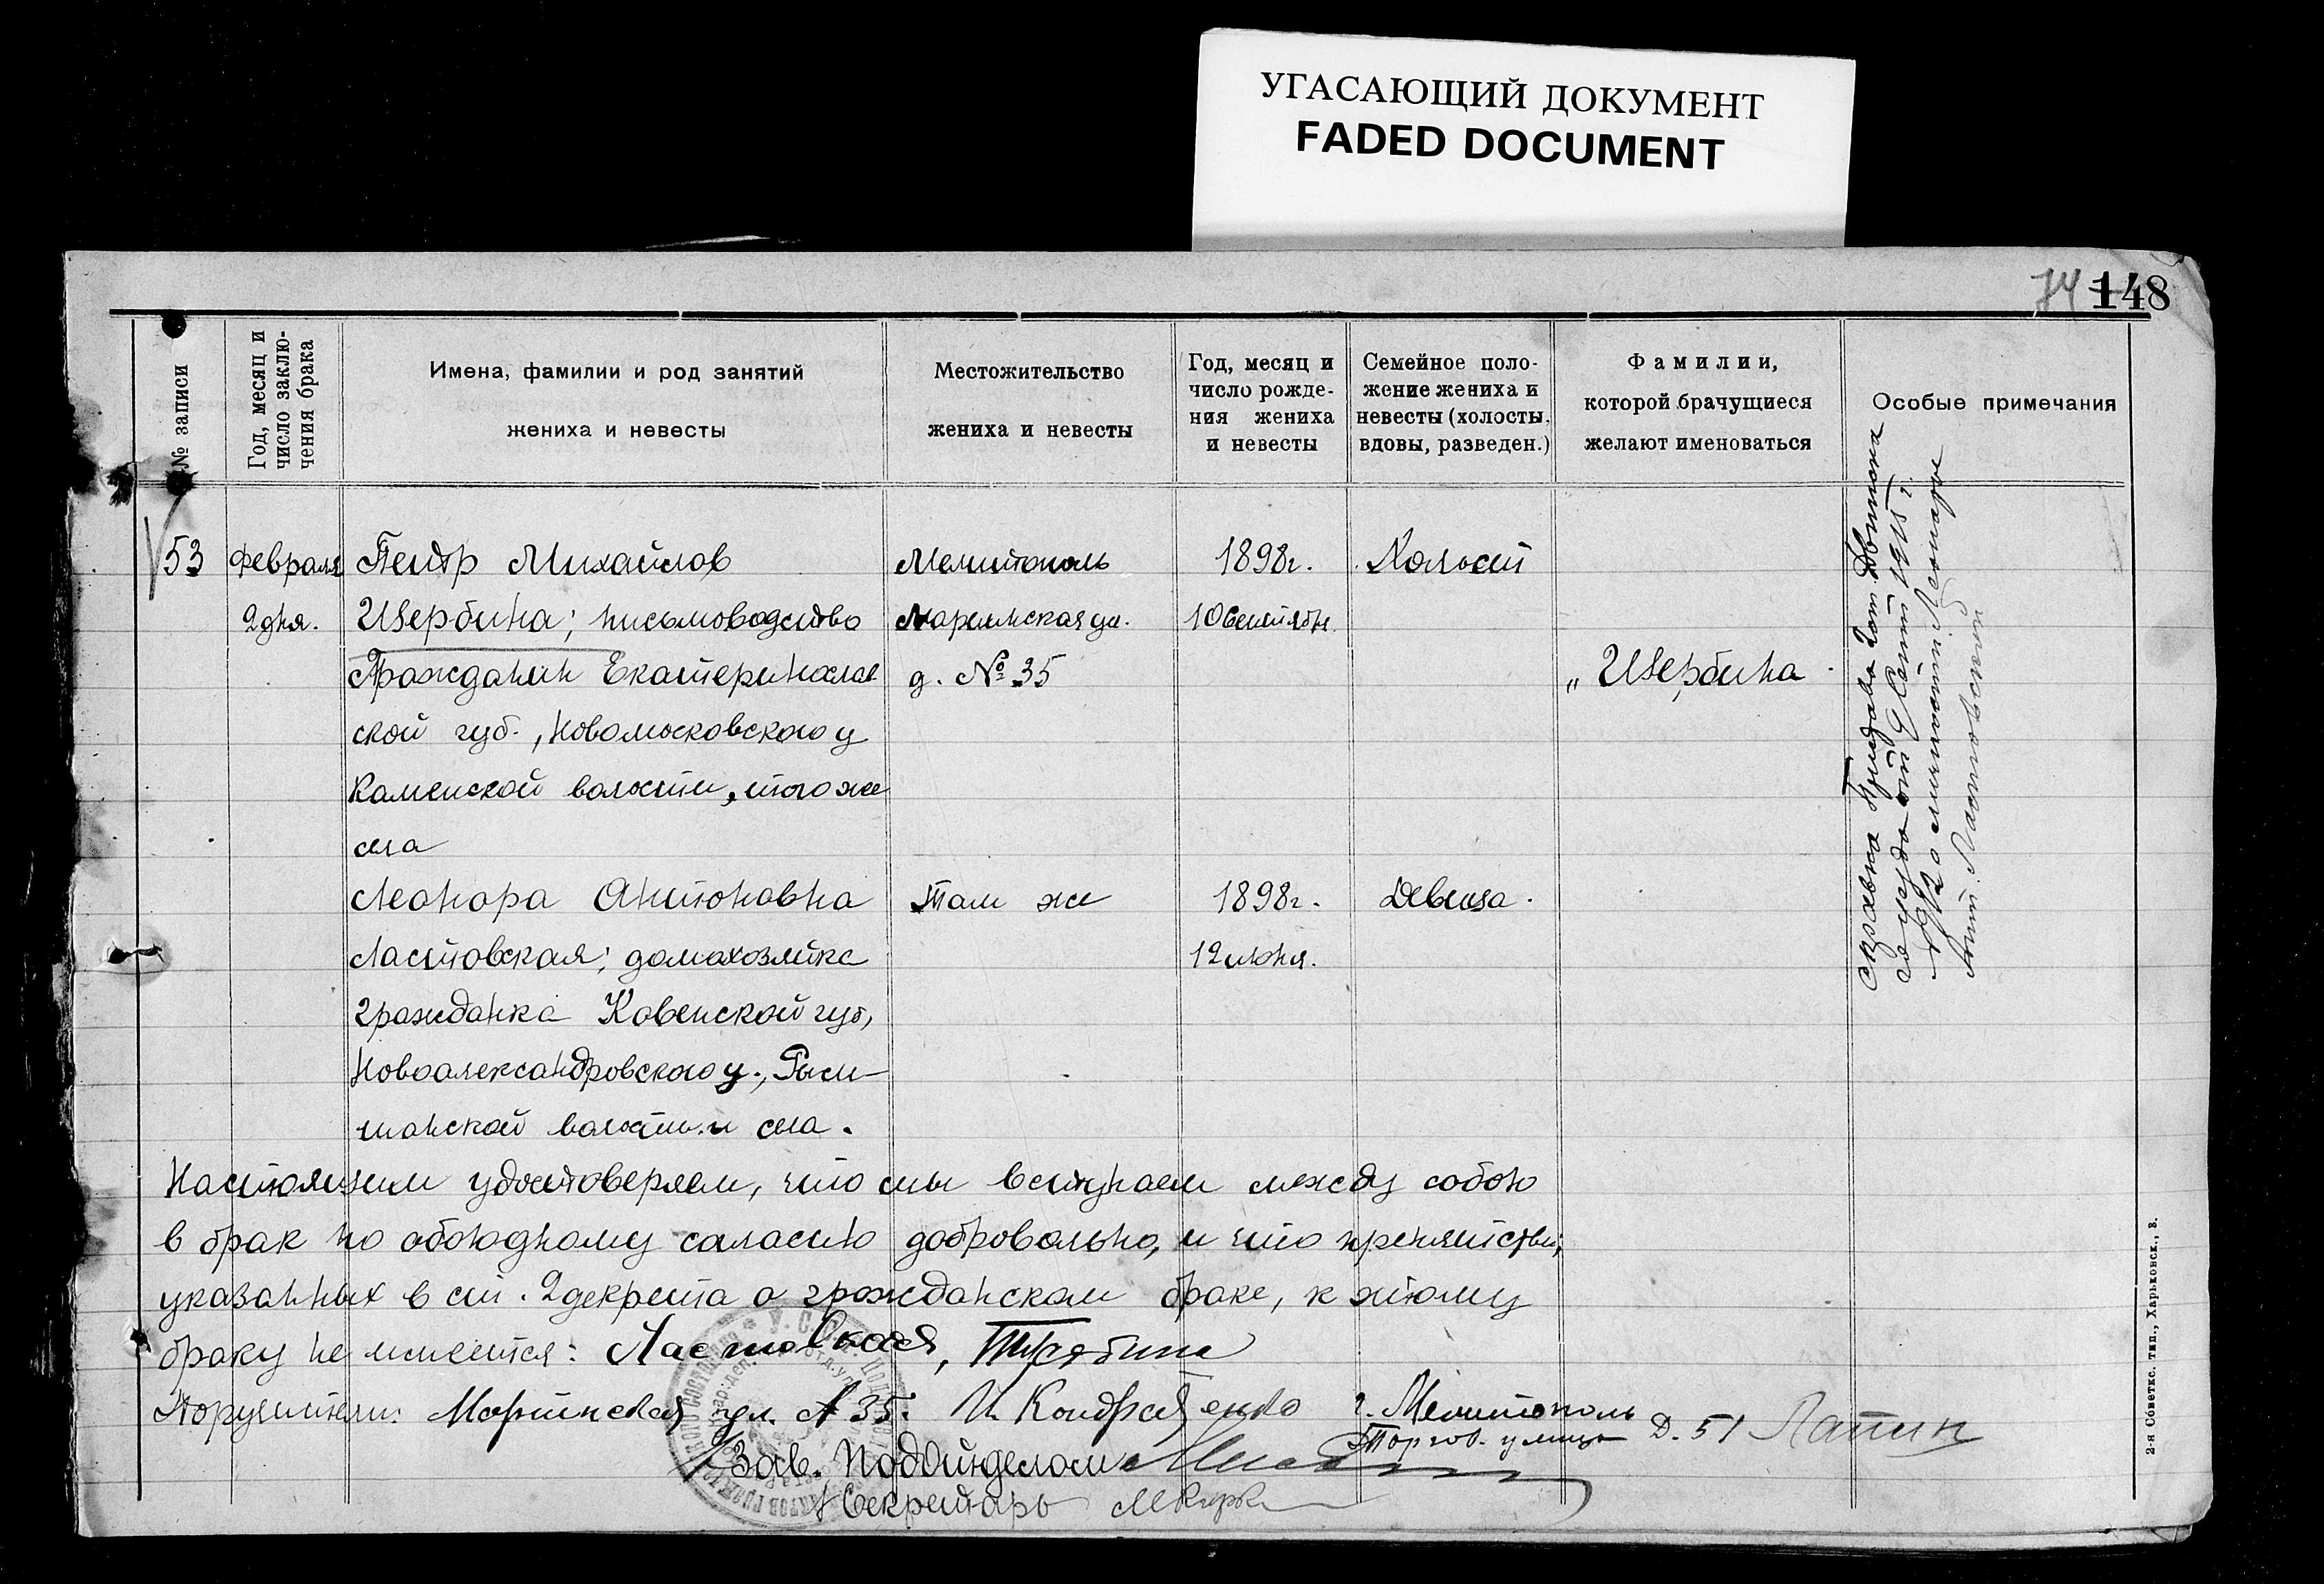 УГАСАЮЩИЙ ДОКУМЕНТ
FADED DOCUMENT
74 148
№ записи
Год, месяц и
число заклю-
чения брака
Имена, фамилии и род занятий
жениха и невесты
Местожительство
жениха и невесты
Год, месяц и
число рожде-
ния жениха
и невесты
Семейное поло-
жение жениха и
невесты (холосты,
вдовы, разведен.)
Фамилии,
которой брачущиеся
желают именоваться
Особые примечания
53 Февраля Петр Михайлов Мелитополь 1898г. Холост
2 дня. Щербина; письмоводство Мариинская ул. 10 сентябр.
Гражданин Екатеринослав д. № 35 „ Щербина
ской губ., Новомосковского у
Каменской волости, того же
села
Леонора Антоновна Там же 1898г. Девица.
Ластовская; домохозяйка 12 июня.
гражданка Ковенской губ,
Новоалександровского у.,
волости и села.
Справка Двинска
уезда от 9 Сент 1915 г.
о личности Леоноры
Ант. Ластовской
Настоящим удостоверяем, что мы вступаем между собою
в брак по обоюдному согласию добровольно, и что препятствий,
указанных в ст. 2 декрета о гражданском браке, к этому
браку не имеется: Ластовская,
Поручители: Мариинская ул. № 35. И. Кондратенко г. Мелитополь
Торгов. улица Д. 51 Лапин
Зав. Подотделом
Секретарь
2-я Советск. тип., Харьковск., 3.